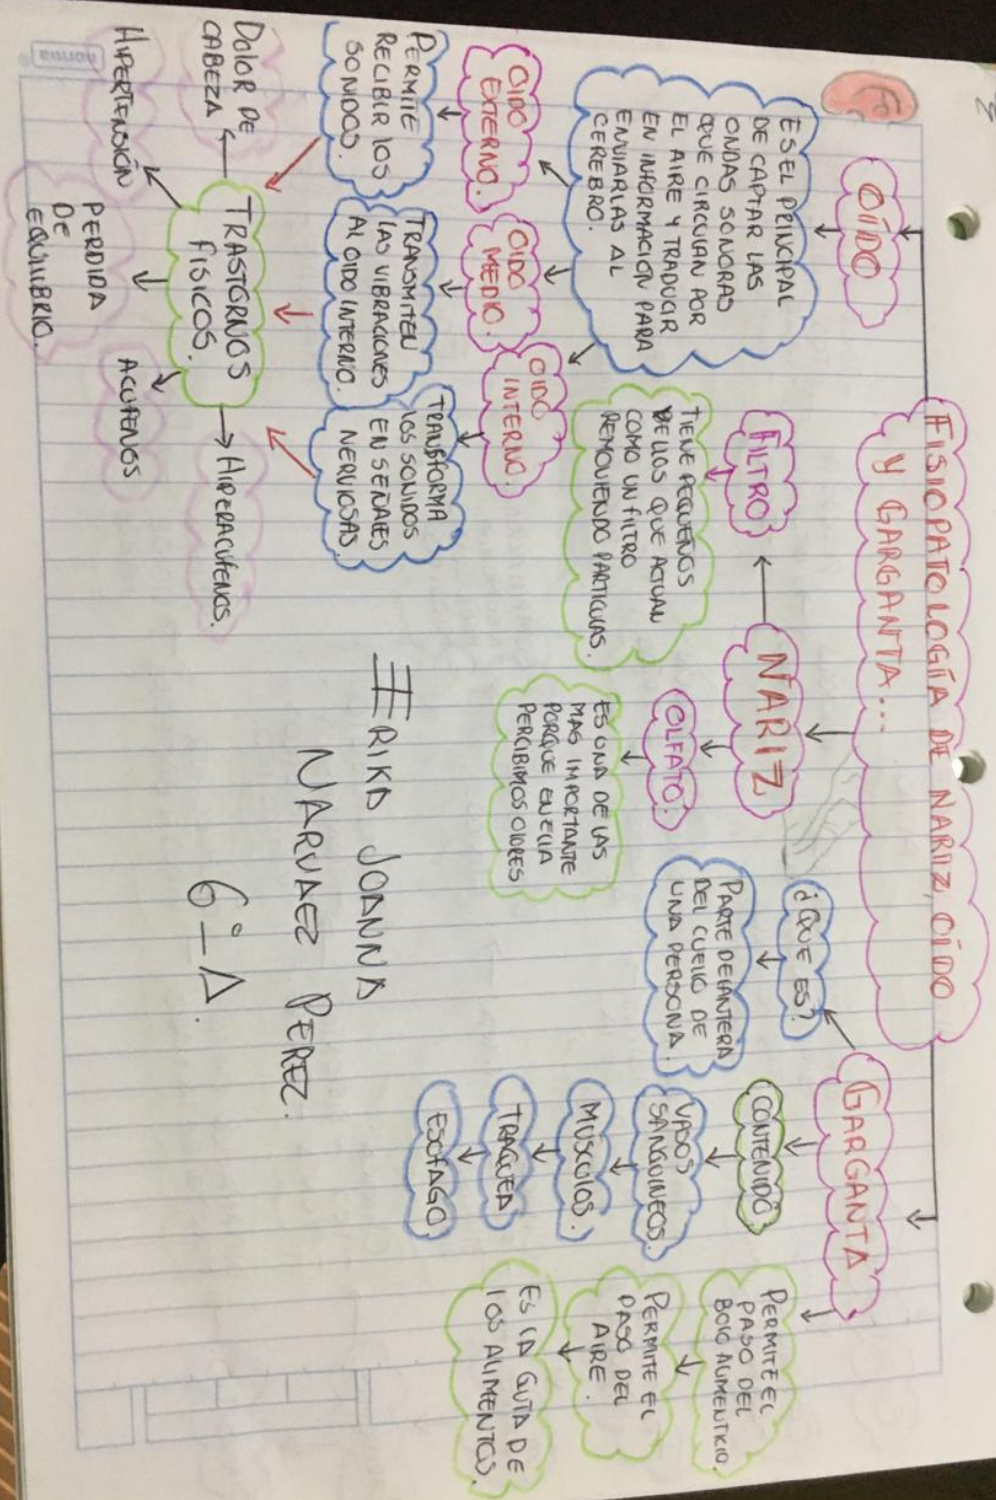 FISIOPATOLOGÍA DE NARIZ, OÍDO
Y GARGANTA...
OÍDO
ES EL PRINCIPAL
DE CAPTAR LAS
ONDAS SONORAS
QUE CIRCULAN POR
EL AIRE Y TRADUCIR
EN INFORMACION PARA
ENVIARLAS AL
CEREBRO.
OIDO
EXTERNO.
OIDO
MEDIO.
OIDO
INTERNO.
PERMITE
RECIBIR LOS
SONIDOS.
TRANSMITEN
LAS VIBRACIONES
AL OIDO INTERNO.
TRANSFORMA
LOS SONIDOS
EN SEÑALES
NERVIOSAS.
TRASTORNOS
FISICOS.
DOLOR DE
CABEZA
HIPERTENSIÓN
PERDIDA
DE
EQUILIBRIO.
ACUFENOS
HIPERACUFENOS.
NARIZ
FILTRO
TIENE PEQUEÑOS
BELLOS QUE ACTUAN
COMO UN FILTRO
REMOVIENDO PARTICULAS.
OLFATO.
ES UNA DE LAS
MAS IMPORTANTE
PORQUE EN ELLA
PERCIBIMOS OLORES
GARGANTA
¿QUE ES?
PARTE DELANTERA
DEL CUELLO DE
UNA PERSONA.
CONTENIDO
VASOS
SANGUINEOS.
MUSCULOS.
TRAQUEA
ESOFAGO
PERMITE EL
PASO DEL
BOLO ALIMENTICIO.
PERMITE EL
PASO DEL
AIRE.
ES LA GUÍA DE
LOS ALIMENTOS.
ERIKA JOANNA
NARVAEZ PEREZ.
6°-A.
norma